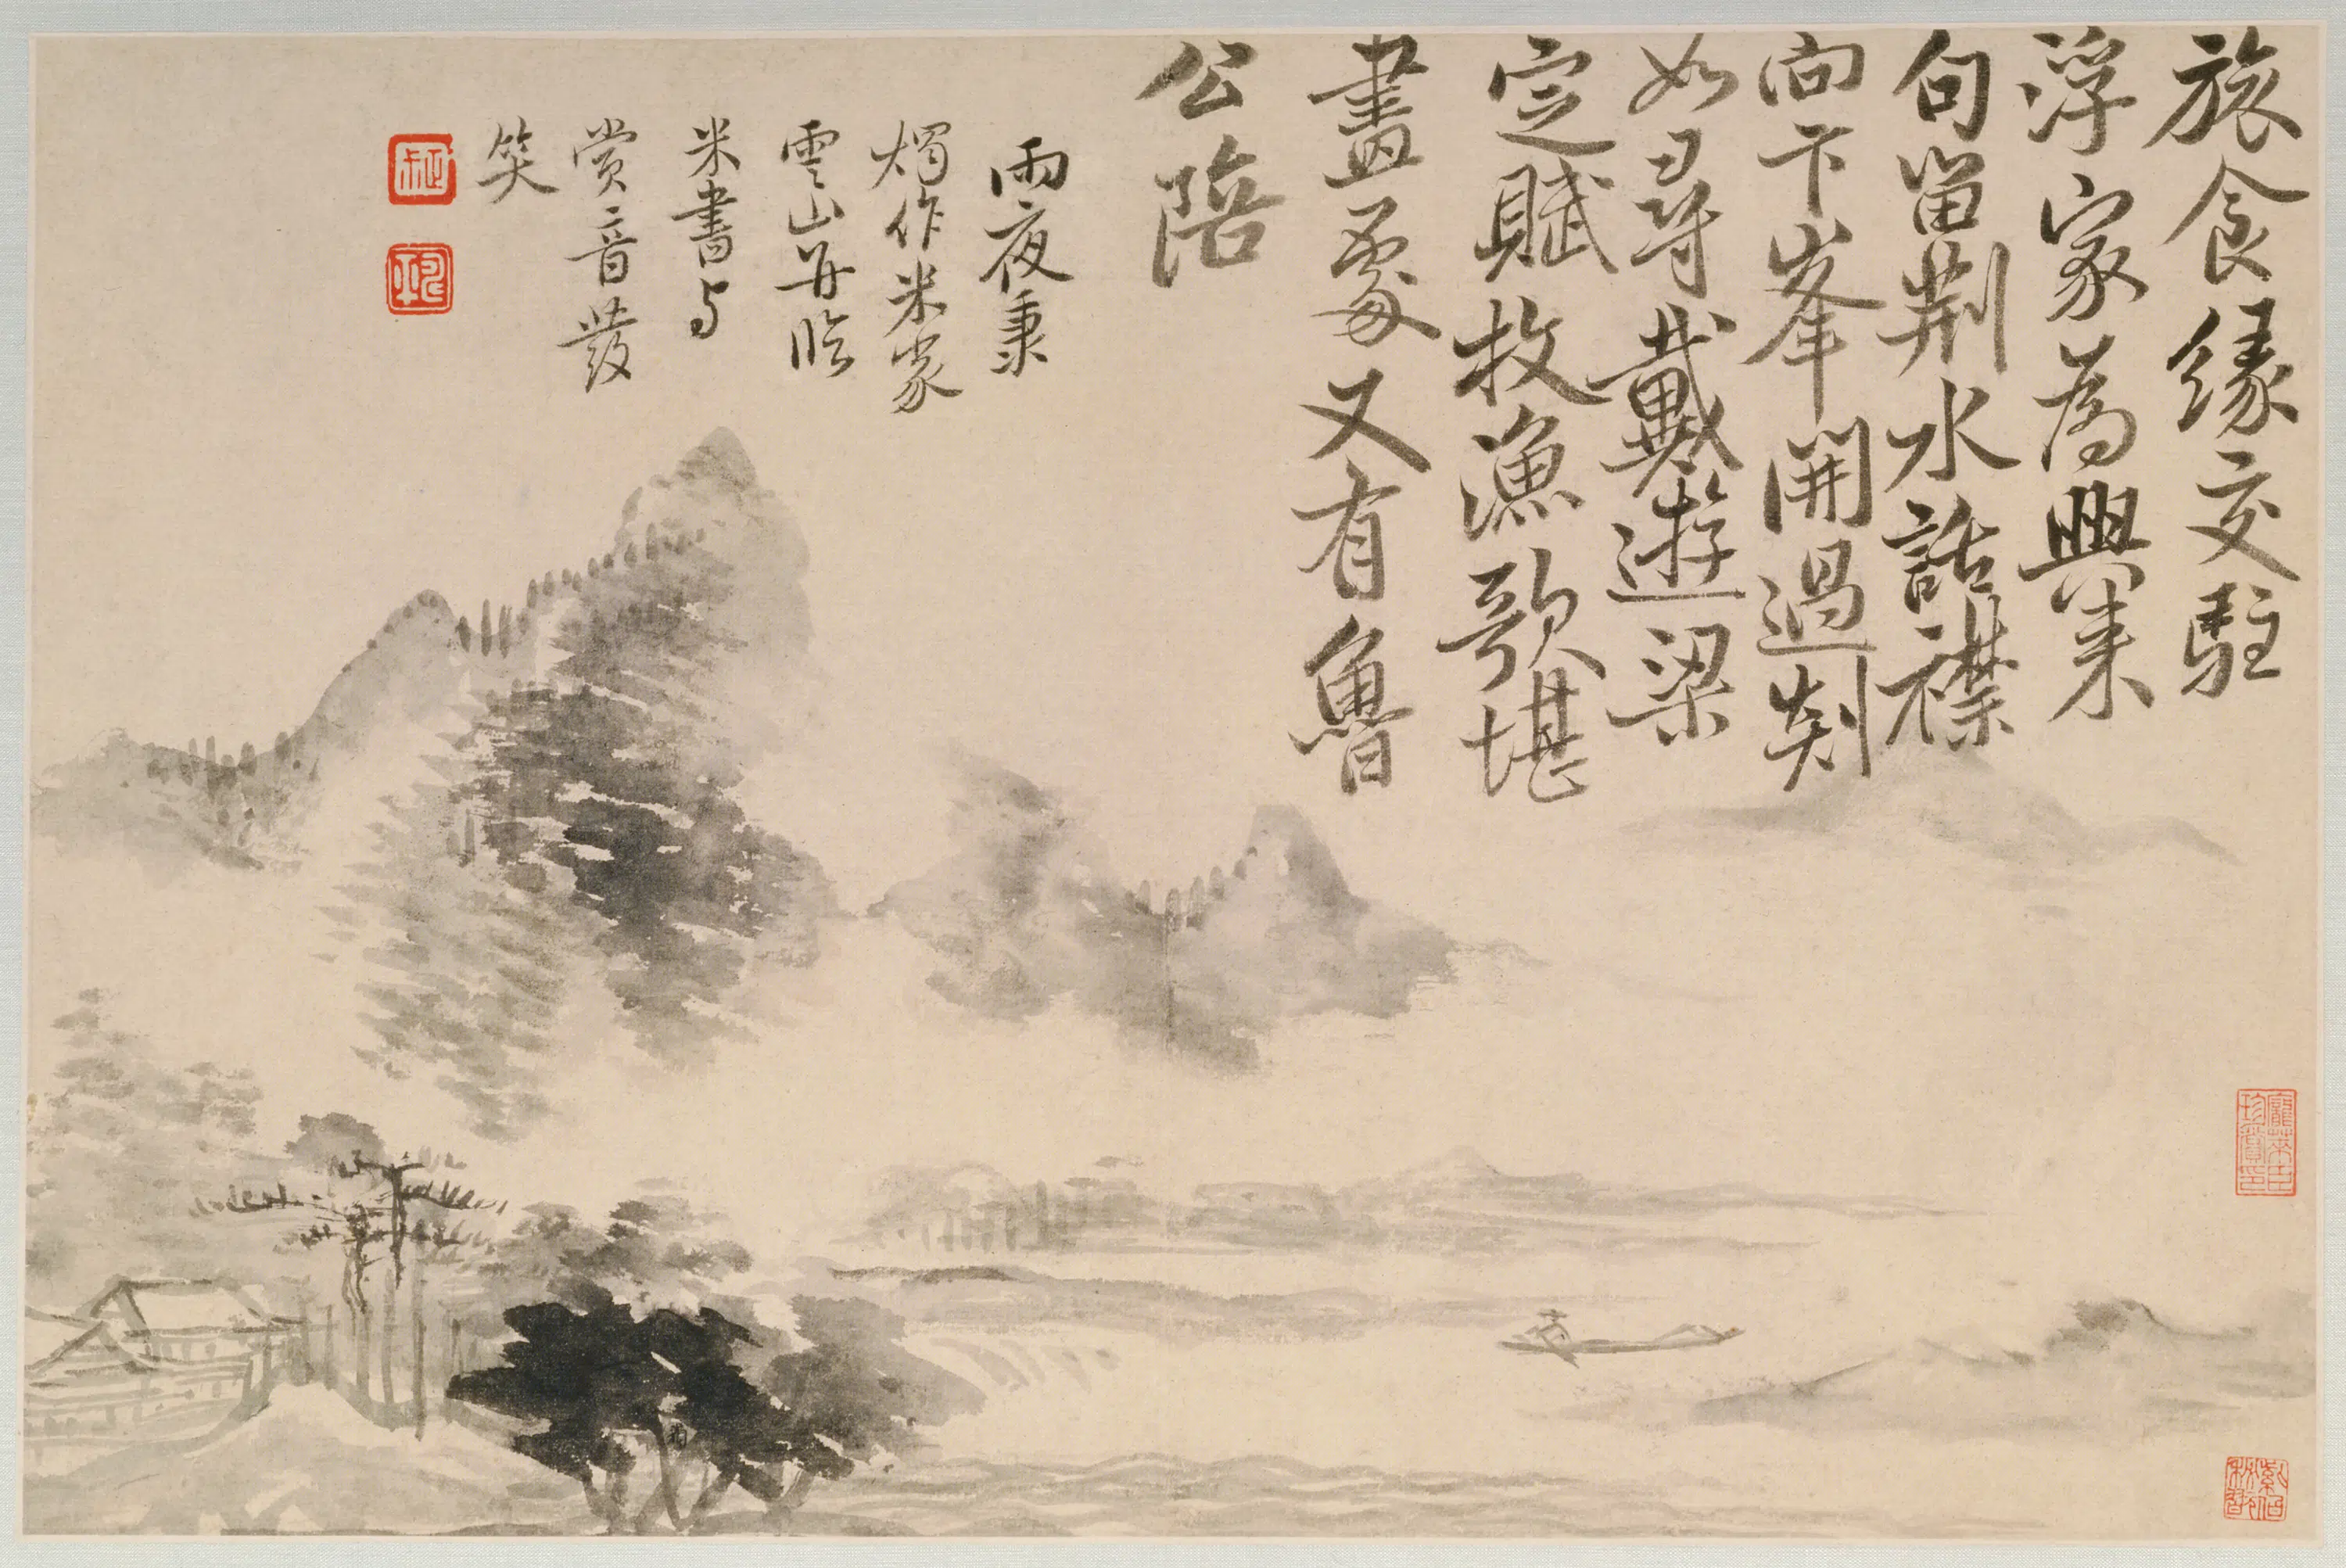 旅食緣交駐
浮家為興來
句留荆水話襟
向卞峯開過剡
如尋戴遊梁
定賦枚漁歌堪
畫處又有魯
公陪
雨夜秉
燭作米家
雲山并臨
米書与
賞音發
笑
龐萊臣珍賞印